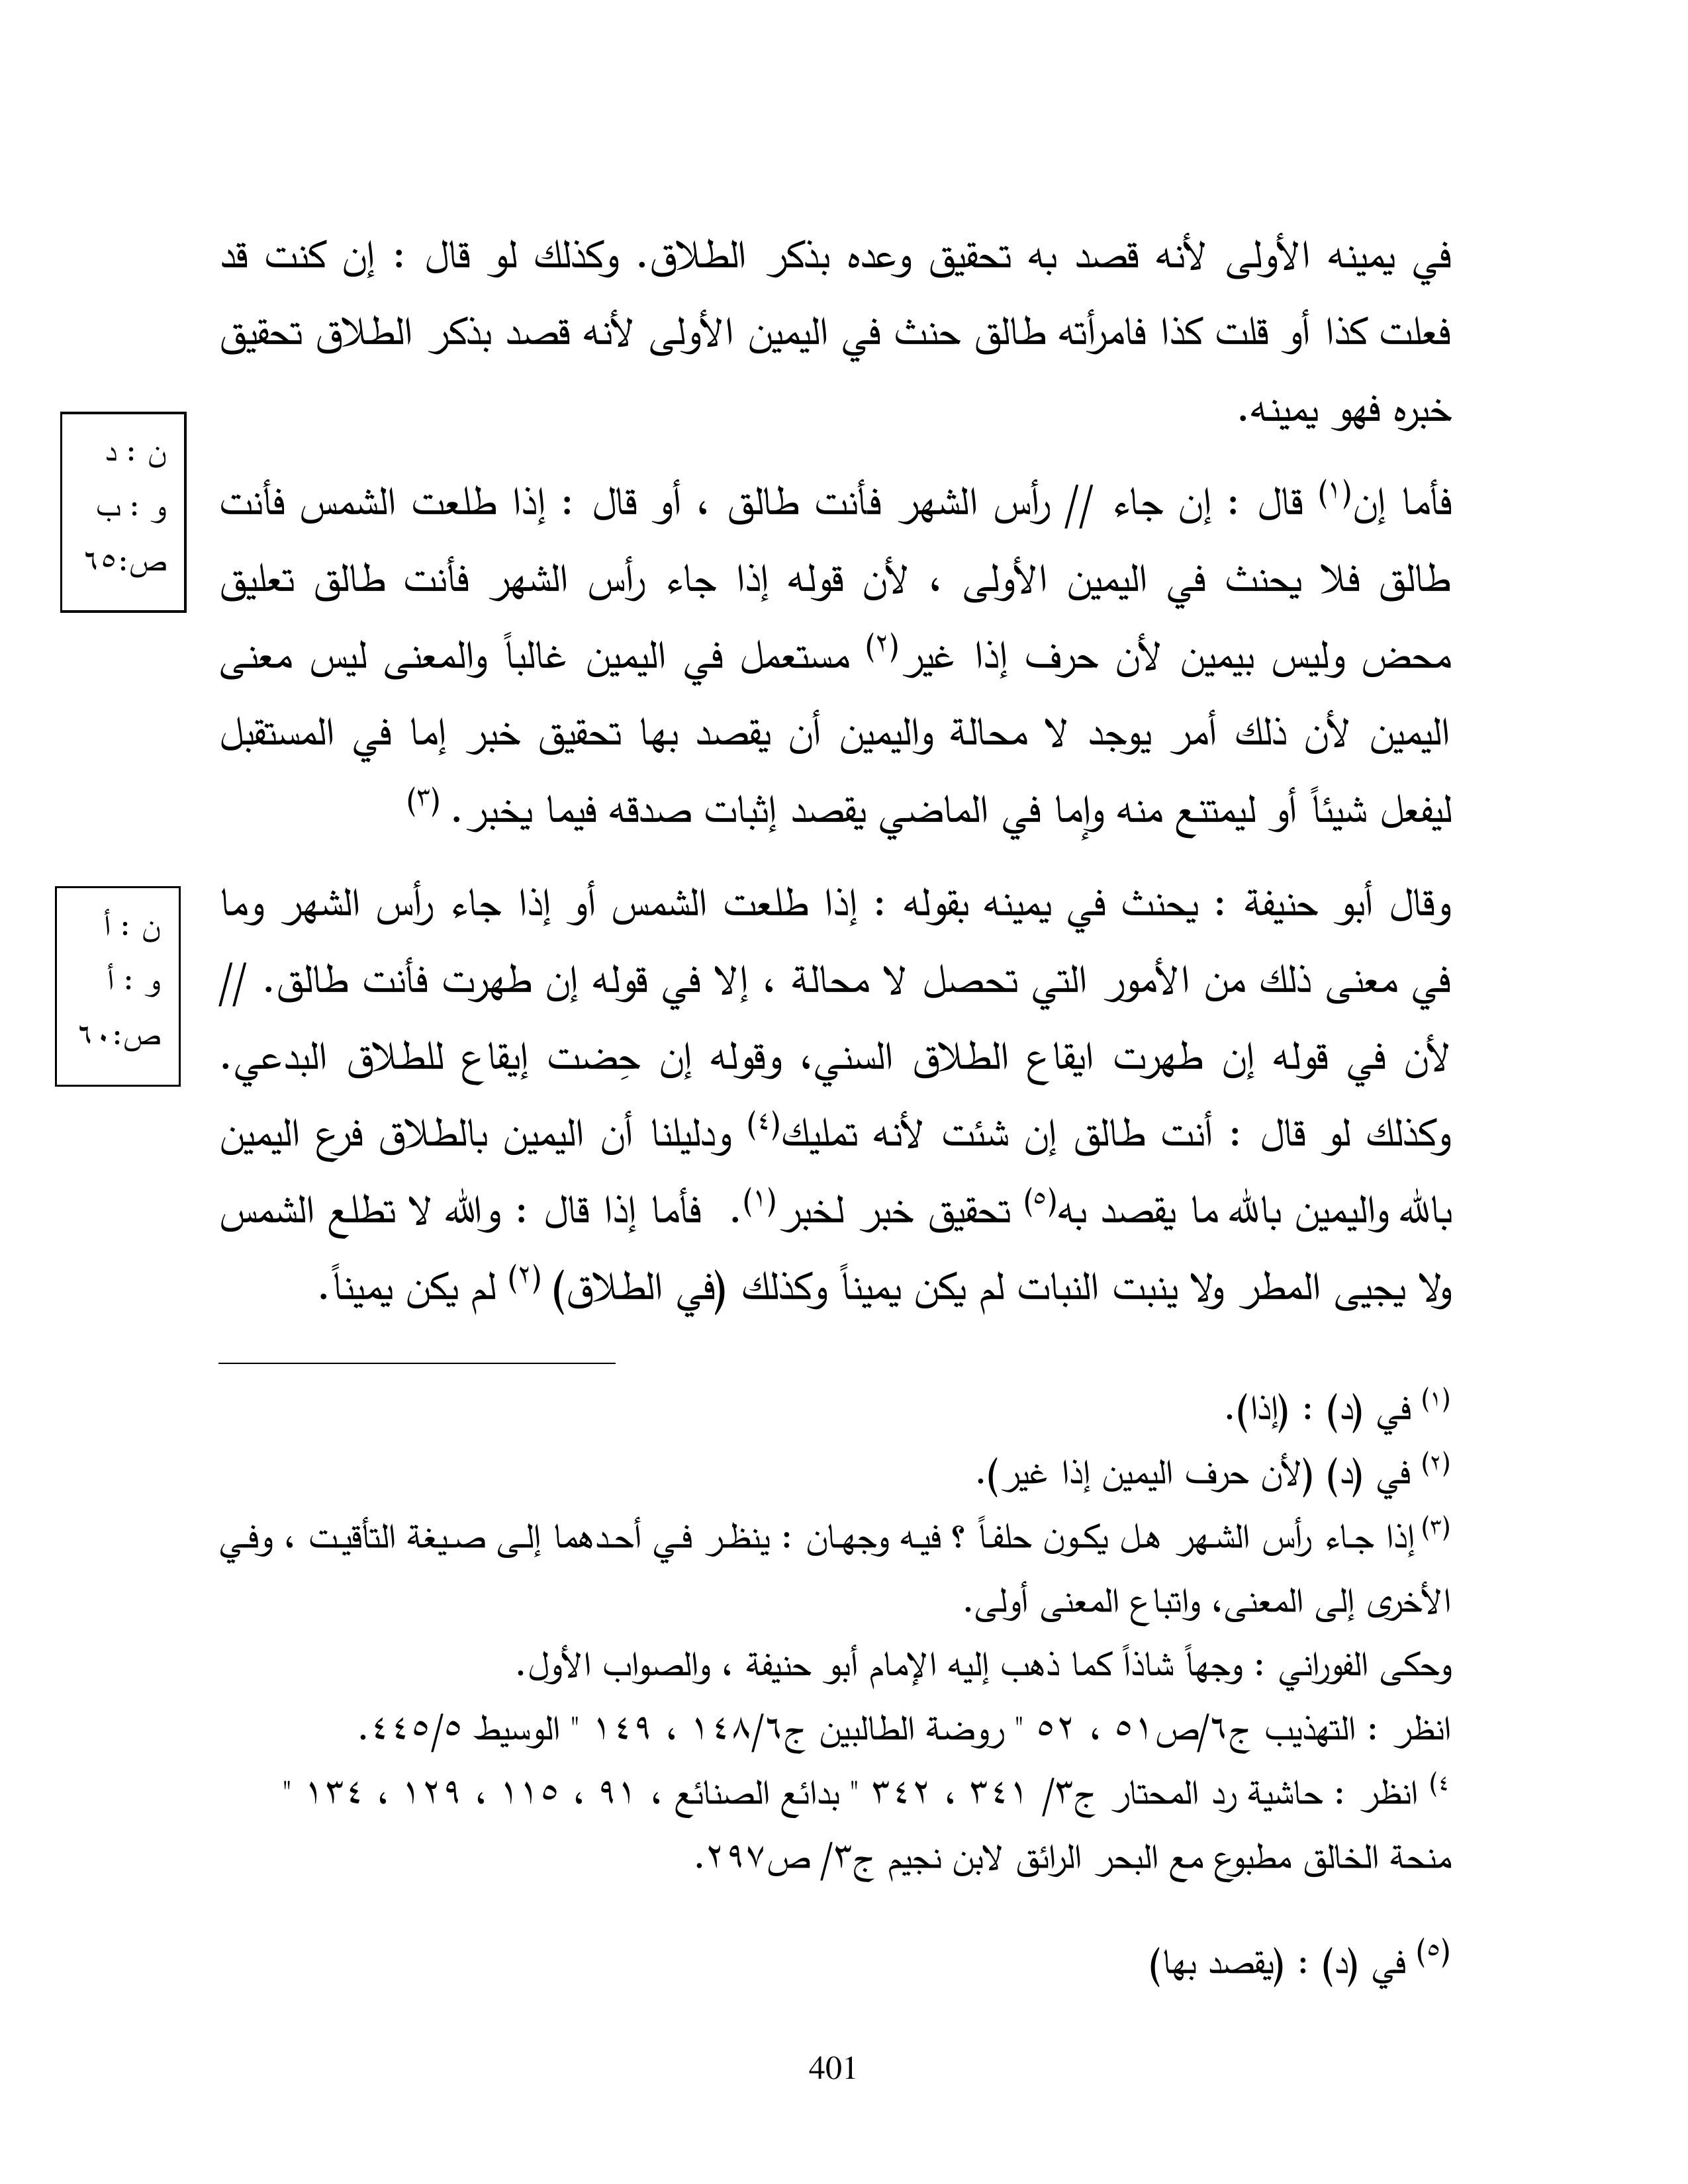 في يمينه الأولى لأنه قصد به تحقيق وعده بذكر الطلاق. وكذلك لو قال : إن كنت قد
فعلت كذا أو قلت كذا فامرأته طالق حنث في اليمين الأولى لأنه قصد بذكر الطلاق تحقيق
خبره فهو يمينه.
ن : د
و : ب
ص:٦٥
فأما إن(١) قال : إن جاء // رأس الشهر فأنت طالق ، أو قال : إذا طلعت الشمس فأنت
طالق فلا يحنث في اليمين الأولى ، لأن قوله إذا جاء رأس الشهر فأنت طالق تعليق
محض وليس بيمين لأن حرف إذا غير(٢) مستعمل في اليمين غالباً والمعنى ليس معنى
اليمين لأن ذلك أمر يوجد لا محالة واليمين أن يقصد بها تحقيق خبر إما في المستقبل
ليفعل شيئاً أو ليمتنع منه وإما في الماضي يقصد إثبات صدقه فيما يخبر. (٣)
ن : أ
و : أ
ص:٦٠
وقال أبو حنيفة : يحنث في يمينه بقوله : إذا طلعت الشمس أو إذا جاء رأس الشهر وما
في معنى ذلك من الأمور التي تحصل لا محالة ، إلا في قوله إن طهرت فأنت طالق. //
لأن في قوله إن طهرت ايقاع الطلاق السني، وقوله إن حِضت إيقاع للطلاق البدعي.
وكذلك لو قال : أنت طالق إن شئت لأنه تمليك(٤) ودليلنا أن اليمين بالطلاق فرع اليمين
بالله واليمين بالله ما يقصد به(٥) تحقيق خبر لخبر(١). فأما إذا قال : والله لا تطلع الشمس
ولا يجيى المطر ولا ينبت النبات لم يكن يميناً وكذلك (في الطلاق) (٢) لم يكن يميناً.
(١) في (د) : (إذا).
(٢) في (د) (لأن حرف اليمين إذا غير).
(٣) إذا جاء رأس الشهر هل يكون حلفاً ؟ فيه وجهان : ينظر في أحدهما إلى صيغة التأقيت ، وفي
الأخرى إلى المعنى، واتباع المعنى أولى.
وحكى الفوراني : وجهاً شاذاً كما ذهب إليه الإمام أبو حنيفة ، والصواب الأول.
انظر : التهذيب ج٦/ص٥١ ، ٥٢ " روضة الطالبين ج٦/١٤٨ ، ١٤٩ " الوسيط ٤٤٥/٥.
٤) انظر : حاشية رد المحتار ج٣/ ٣٤١ ، ٣٤٢ " بدائع الصنائع ، ٩١ ، ١١٥ ، ١٢٩ ، ١٣٤ "
منحة الخالق مطبوع مع البحر الرائق لابن نجيم ج٣/ ص٢٩٧.
(٥) في (د) : (يقصد بها)
401